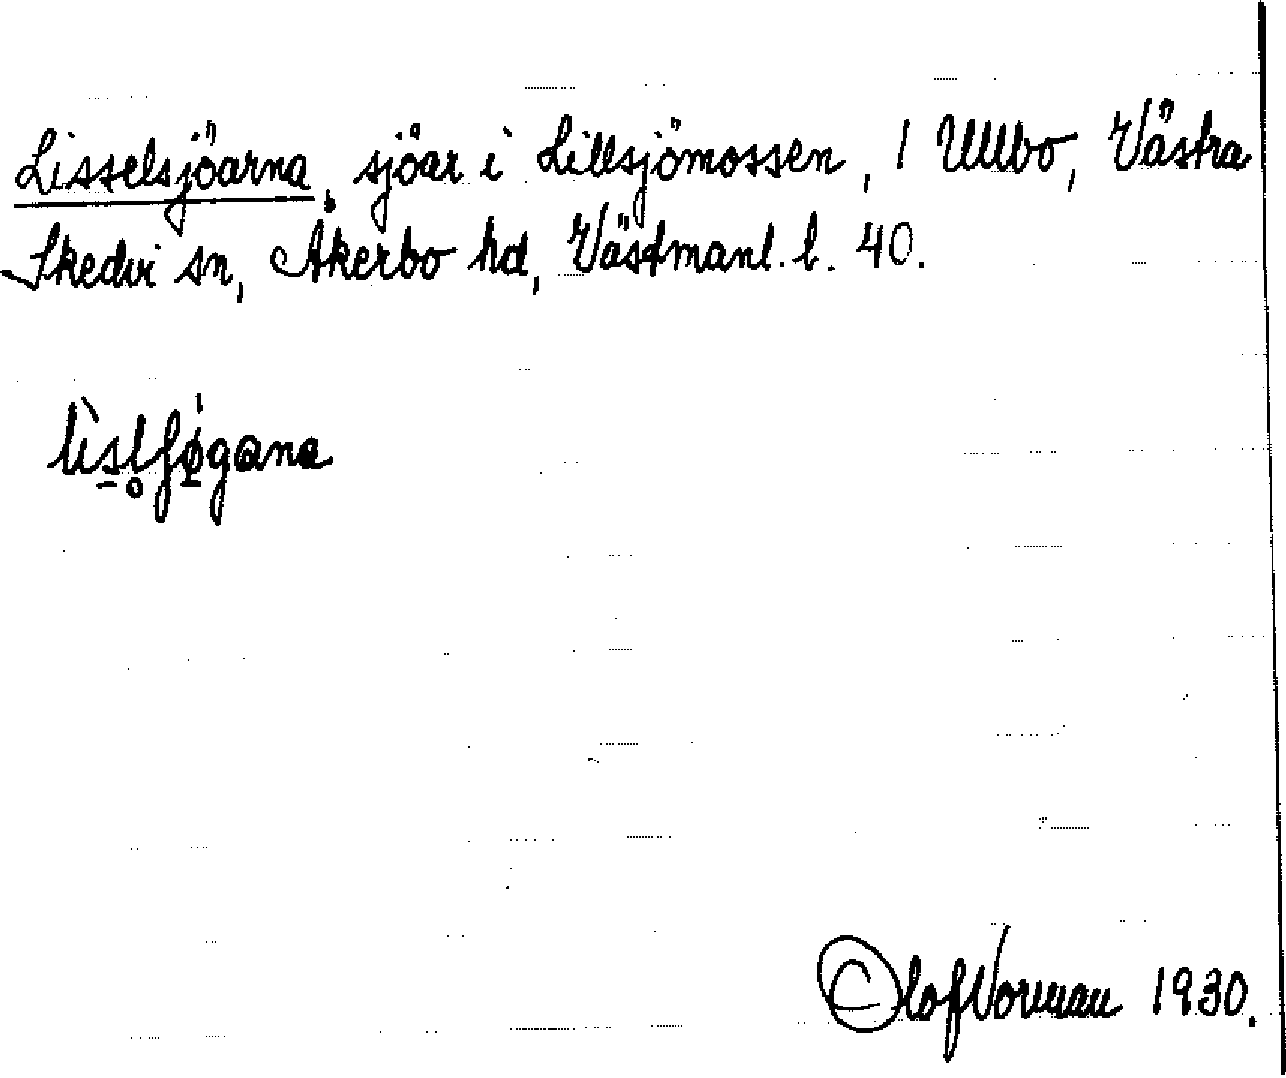 Lisselsjöarna, sjöar i Lillsjömossen, 1 Ullbo, Västra
Skedvi sn, Åkerbo hd, Västmanl. l. 40.
Olof Norman 1930.